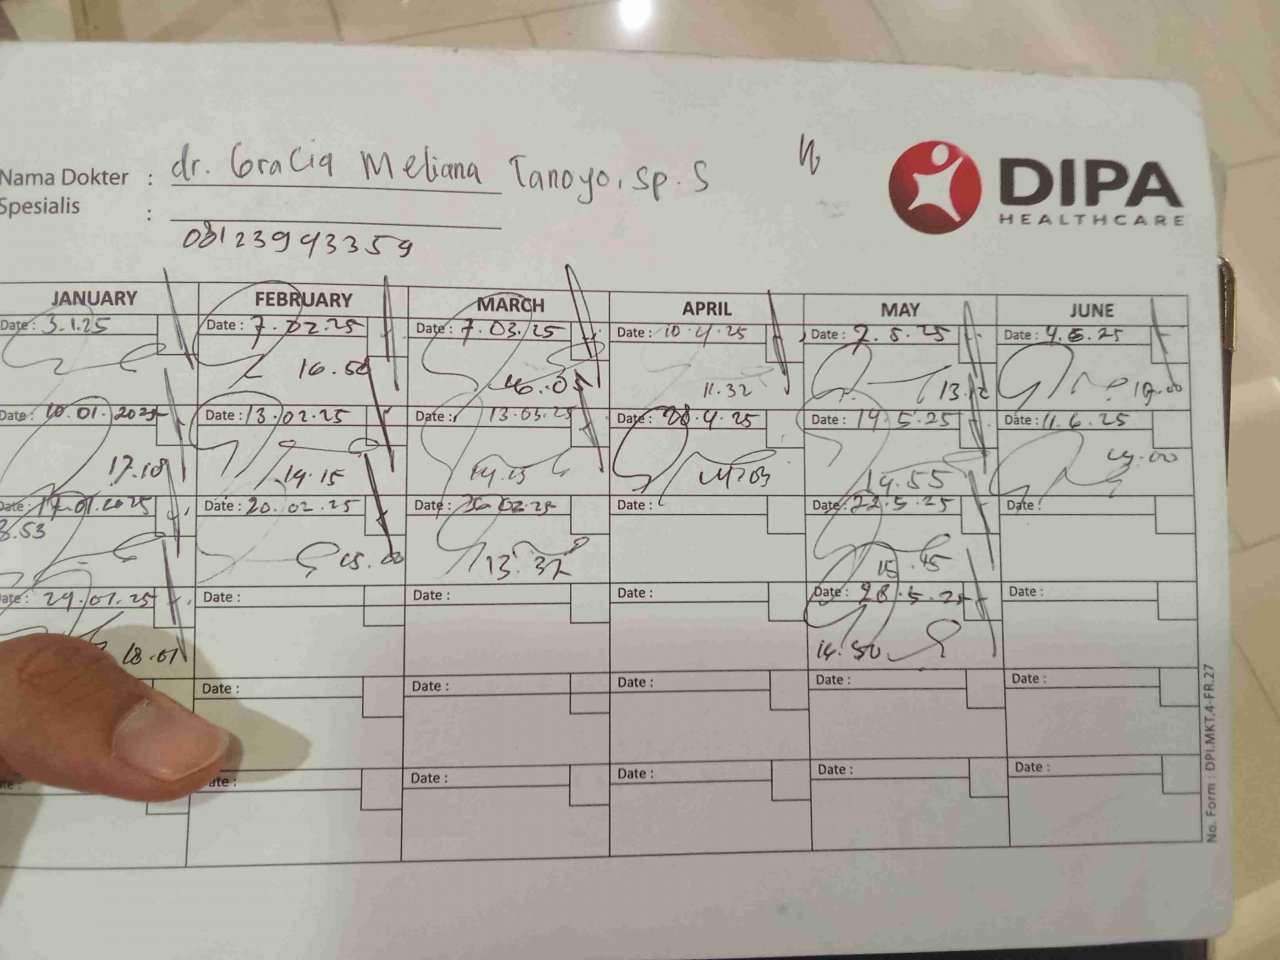 dr. Gracia Meliana Tanoyo, Sp. S
DIPA
HEALTHCARE
Nama Dokter :
Spesialis :
08123943359
JANUARY FEBRUARY MARCH APRIL MAY JUNE
Date : 3.1.25 Date : 7.02.25 Date : 7.03.25 Date : 10.4.25 Date : 7.5.25 Date : 4.6.25
16.50 16.05 11.32 13.12
Date : 10.01.2025 Date : 13.02.25 Date : 13.03.25 Date : .4.25 Date : 14.5.25 Date : 11.6.25
17.18 14.15 14.55
Date : .01.2025 Date : 20.02.25 Date : Date : Date : 22.5.25 Date :
.53 15.00 13.37 15.45
Date : Date : Date : Date : 28.5.25 Date :
18.01 14.50
Date : Date : Date : Date : Date :
Date : Date : Date : Date :
No. Form : DPI.MKT.4-FR.27